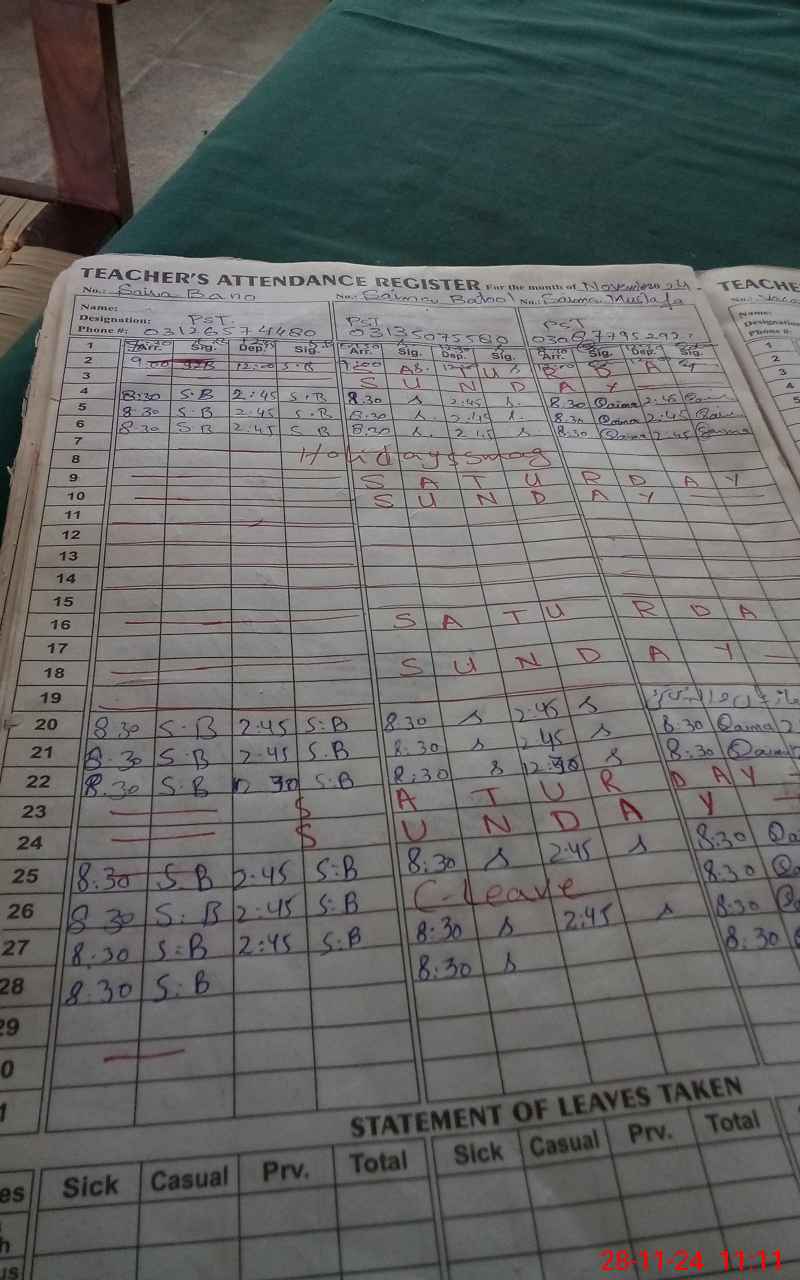 TEACHER'S ATTENDANCE REGISTER For the month of November 24. TEACHE
No.: Saiva Bano No.: Saima Batool No.: Saima Mustafa No.:
Name:
Designation: PST PST PST
Phone #: 03126574480 03135075580
Arr. Sig. Dep. Sig. Arr. Sig. Dep. Sig. Arr. Sig. Dep. Sig.
1
2 9.00 12:00 S.B
3 S U N D A Y
4 8:30 S.B 2:45 S.B 8.30 s 2.45 s. 8.30 Qaima 2.45
5 8:30 S.B 2.45 S.B 8:30 s. 2.45 s. 8.30 Qaima 2.45
6 8.30 S.B 2:45 S.B 8:30 s. s 8:30 Qaima 2.45
7
8 Holidays smog
9 S A T U R D A Y
10 S U N D A Y
11
12
13
14
15
16 S A T U R D A
17
18 S U N D A Y
19
20 8.30 S.B 2:45 S:B 8:30 s 2:45 s 8:30 Qaima 2
21 8.30 S.B 2.45 S.B 8:30 s 2.45 s 8:30 Qaima
22 8.30 S.B 12 30 S.B 8:30 s 12:30 s
23 S A T U R D A Y
24 S U N D A Y
25 8.30 S.B 2:45 S:B 8:30 s 2:45 s 8:30 Qa
26 8 30 S: B 2:45 S:B C-Leave 8:30
27 8:30 S:B 2:45 S:B 8:30 s 2.45 s 8:30
28 8.30 S: B 8:30 s 8:30
29
0
1
STATEMENT OF LEAVES TAKEN
es Sick Casual Prv. Total Sick Casual Prv. Total
h
us
28-11-24 11:11